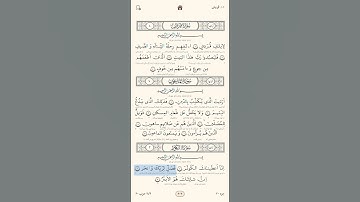 سُورَةُ قُرَيْشٍ
بِسْمِ اللَّهِ الرَّحْمَنِ الرَّحِيمِ
لِإِيلَافِ قُرَيْشٍ ۝ إِيلَافِهِمْ رِحْلَةَ الشِّتَاءِ وَ الصَّيْفِ
۝ فَلْيَعْبُدُوا رَبَّ هَذَا الْبَيْتِ ۝ الَّذِي أَطْعَمَهُمْ
مِنْ جُوعٍ وَ آمَنَهُمْ مِنْ خَوْفٍ ۝
سُورَةُ الْمَاعُونِ
بِسْمِ اللَّهِ الرَّحْمَنِ الرَّحِيمِ
أَرَءَيْتَ الَّذِي يُكَذِّبُ بِالدِّينِ ۝ فَذَلِكَ الَّذِي يَدُعُّ
الْيَتِيمَ ۝ وَ لَا يَحُضُّ عَلَى طَعَامِ الْمِسْكِينِ ۝ فَوَيْلٌ
لِلْمُصَلِّينَ ۝ الَّذِينَ هُمْ عَنْ صَلَاتِهِمْ سَاهُونَ ۝
الَّذِينَ هُمْ يُرَاءُونَ ۝ وَ يَمْنَعُونَ الْمَاعُونَ ۝
سُورَةُ الْكَوْثَرِ
بِسْمِ اللَّهِ الرَّحْمَنِ الرَّحِيمِ
إِنَّا أَعْطَيْنَاكَ الْكَوْثَرَ ۝ فَصَلِّ لِرَبِّكَ وَ انْحَرْ ۝
إِنَّ شَانِئَكَ هُوَ الْأَبْتَرُ ۝